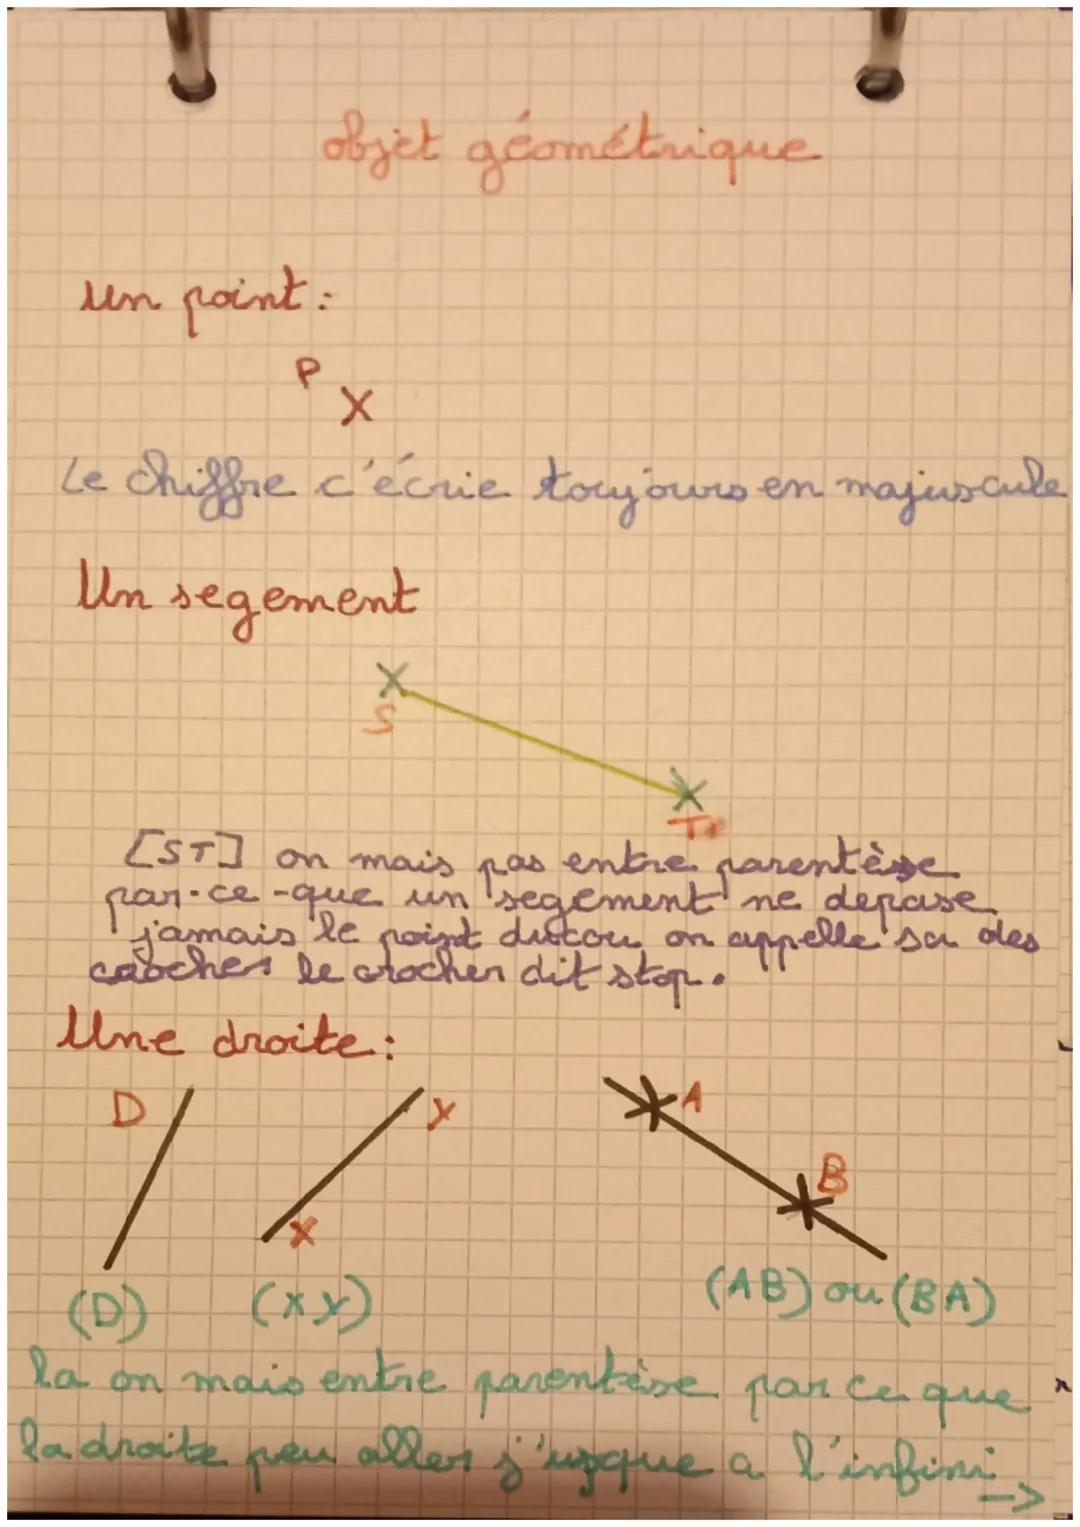 objet géométrique
Un point :
P
Le chiffre c'écrie toujours en majuscule
Un segement
S
T
[ST] on mais pas entre parentèse
par-ce-que un segement ne depase
jamais le point on appelle sa des
croches le crocher dit stop.
Une droite :
D
y
A
x
B
(D)
(xy)
(AB) ou (BA)
la on mais entre parentèse par ce que
la droite peu aller j'usque a l'infini
->